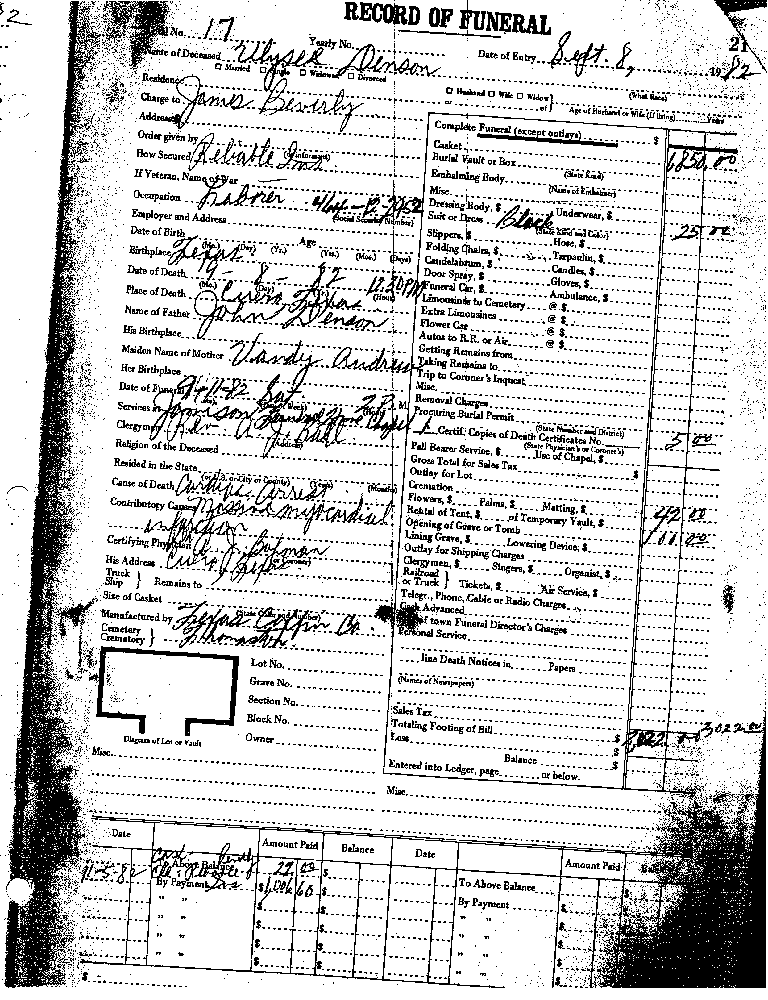 RECORD OF FUNERAL
No. 17 Yearly No. 21
Name of Deceased Ulysee Denson Date of Entry Sept. 8, 1982
Married Single Widowed Divorced
Residence Husband Wife Widow of (What Race)
Charge to James Beverly Age of Husband or Wife (if living) Years
Address
Order given by (Informant)
How Secured Reliable Ins.
If Veteran, Name of War
Occupation Laborer (Social Security Number)
Employer and Address
Date of Birth (Mo.) (Day) (Yr.) Age (Yrs.) (Mos.) (Days)
Birthplace Texas
Date of Death 9-8-82 12:30 PM (Hour)
Place of Death Cuero Texas
Name of Father John Denson
His Birthplace
Maiden Name of Mother Vandy Andrews
Her Birthplace
Date of Funeral 9-11-82 Sat 2 P. M.
Services in Jamison Funeral Home Chapel
Clergyman Rev.
Religion of the Deceased
Resided in the State (or U.S. or City or County) (Years) (Months)
Cause of Death Cardiac Arrest
Contributory Causes Massive myocardial
infarction
Certifying Physician
His Address Cuero Texas
Truck Ship } Remains to
Size of Casket
Manufactured by Texas Coffin Co.
Cemetery Crematory } Thomaston
Lot No.
Grave No.
Section No.
Block No.
Owner
Diagram of Lot or Vault
Misc.
Complete Funeral (except outlays) $ 1850.00
Casket
Burial Vault or Box (State Kind)
Embalming Body (Name of Embalmer)
Misc.
Dressing Body, $ Underwear, $
Suit or Dress Black (State Kind and Color) 25 00
Slippers, $ Hose, $
Folding Chairs, $ Tarpaulin, $
Candelabrum, $ Candles, $
Door Spray, $ Gloves, $
Funeral Car, $ Ambulance, $
Limousines to Cemetery @ $
Extra Limousines @ $
Flower Car @ $
Autos to R.R. or Air @ $
Getting Remains from
Taking Remains to
Trip to Coroner's Inquest
Misc.
Removal Charges
Procuring Burial Permit (State Number and District)
1 Certif. Copies of Death Certificates No. 5 00
(State Physician's or Coroner's)
Pall Bearer Service, $ Use of Chapel, $
Gross Total for Sales Tax $
Outlay for Lot
Cremation
Flowers, $ Palms, $ Matting, $
Rental of Tent, $ of Temporary Vault, $ 42 00
Opening of Grave or Tomb 100.00
Lining Grave, $ Lowering Device, $
Outlay for Shipping Charges
Clergymen, $ Singers, $ Organist, $
Railroad or Truck } Tickets, $ Air Service, $
Telegr., Phone, Cable or Radio Charges
Cash Advanced
Out of town Funeral Director's Charges
Personal Service
line Death Notices in Papers
(Names of Newspapers)
Sales Tax
Totaling Footing of Bill $ 2022.00 3022.00
Less $
Balance $
Entered into Ledger, page or below.
Misc.
Date Amount Paid Balance Date Amount Paid Balance
To Above Balance 22 00 $ To Above Balance
11-5-82 By Payment $ By Payment